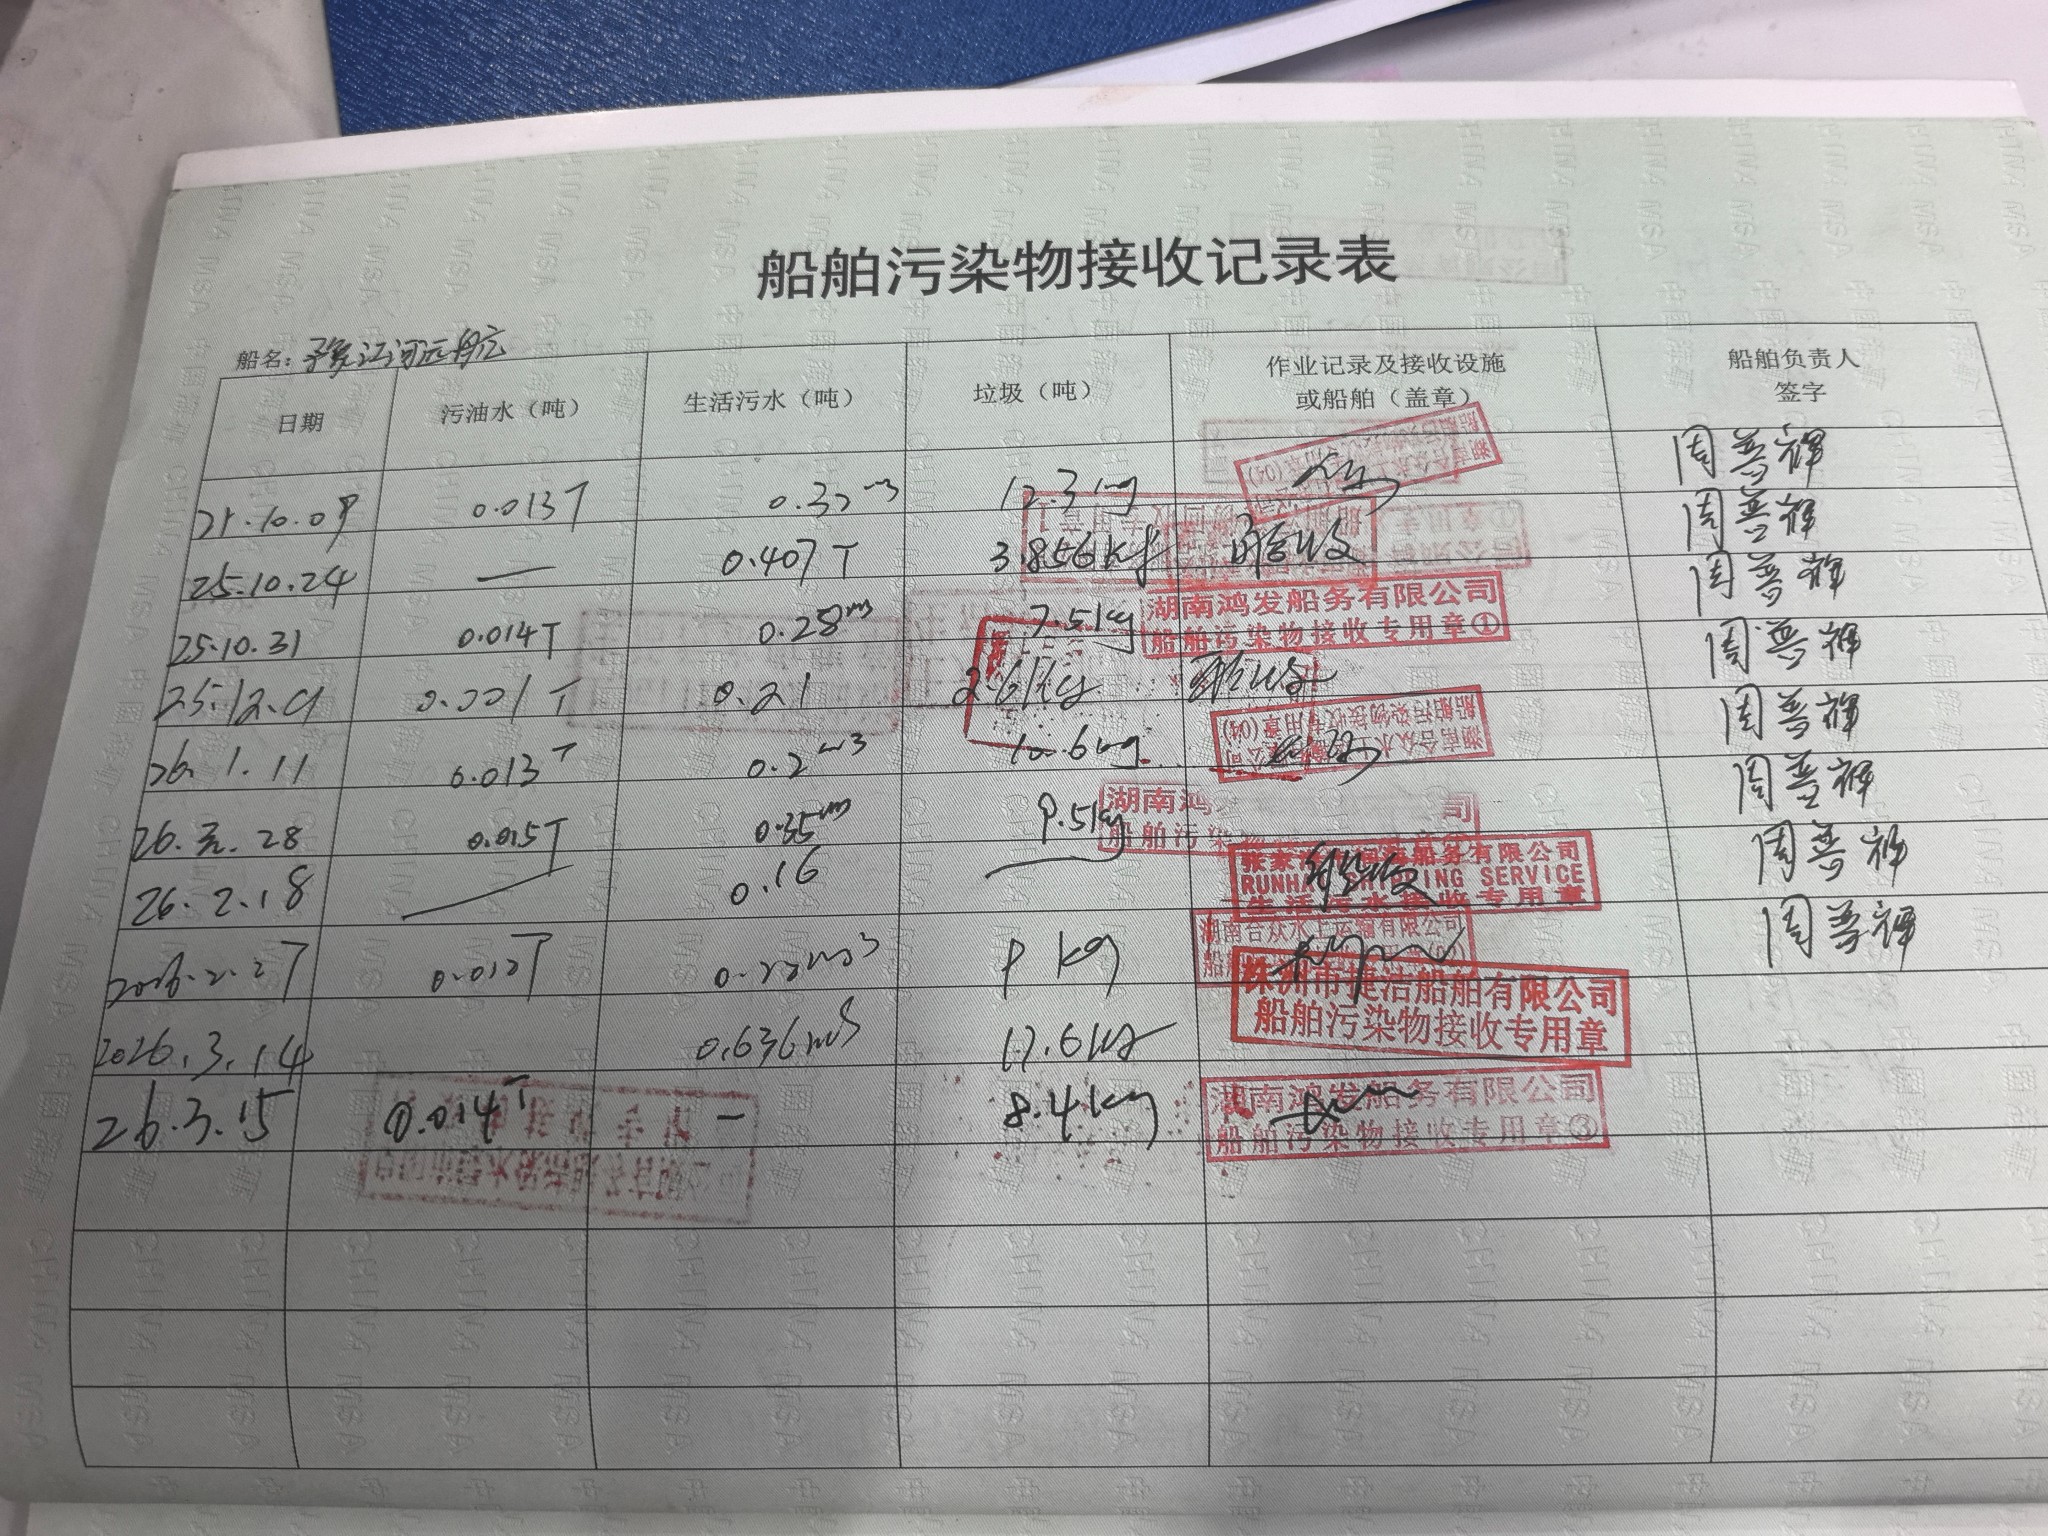 船舶污染物接收记录表
船名: 豫江河远航
日期 污油水（吨） 生活污水（吨） 垃圾（吨） 作业记录及接收设施或船舶（盖章） 船舶负责人签字
10.09 0.013T 12.3kg 周普辉
25.10.24 — 0.407T 3.856kg 验收 周普辉
25.10.31 0.014T 0.28m3 7.5kg 湖南鸿发船务有限公司 船舶污染物接收专用章① 周普辉
25.12.9 0.001T 0.21 2.61kg 验收 周普辉
26.1.11 0.013T 0.2m3 10.6kg 周普辉
26.元.28 0.015T 0.35m3 9.5kg 湖南鸿 司 船舶污染物 周普辉
26.2.18 — 0.16 — 船务有限公司 RUNHA SHIPPING SERVICE 生活污水接收专用章 验收 周普辉
2026.2.27 9kg 湖南合众水上运输有限公司 周普辉
2026.3.14 0.636m3 17.6kg 株洲市捷洁船舶有限公司 船舶污染物接收专用章
26.3.15 0.014T — 8.4kg 湖南鸿发船务有限公司 船舶污染物接收专用章③